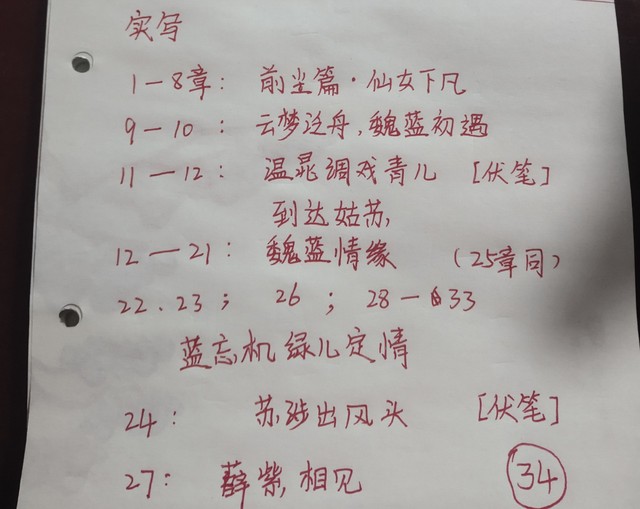 实写
1—8章： 前尘篇·仙女下凡
9—10： 云梦泛舟，魏蓝初遇
11—12： 温晁调戏青儿 [伏笔]
到达姑苏，
12—21： 魏蓝情缘 （25章同）
22．23； 26； 28—33
蓝忘机绿儿定情
24： 苏涉出风头 [伏笔]
27： 薛紫，相见 34